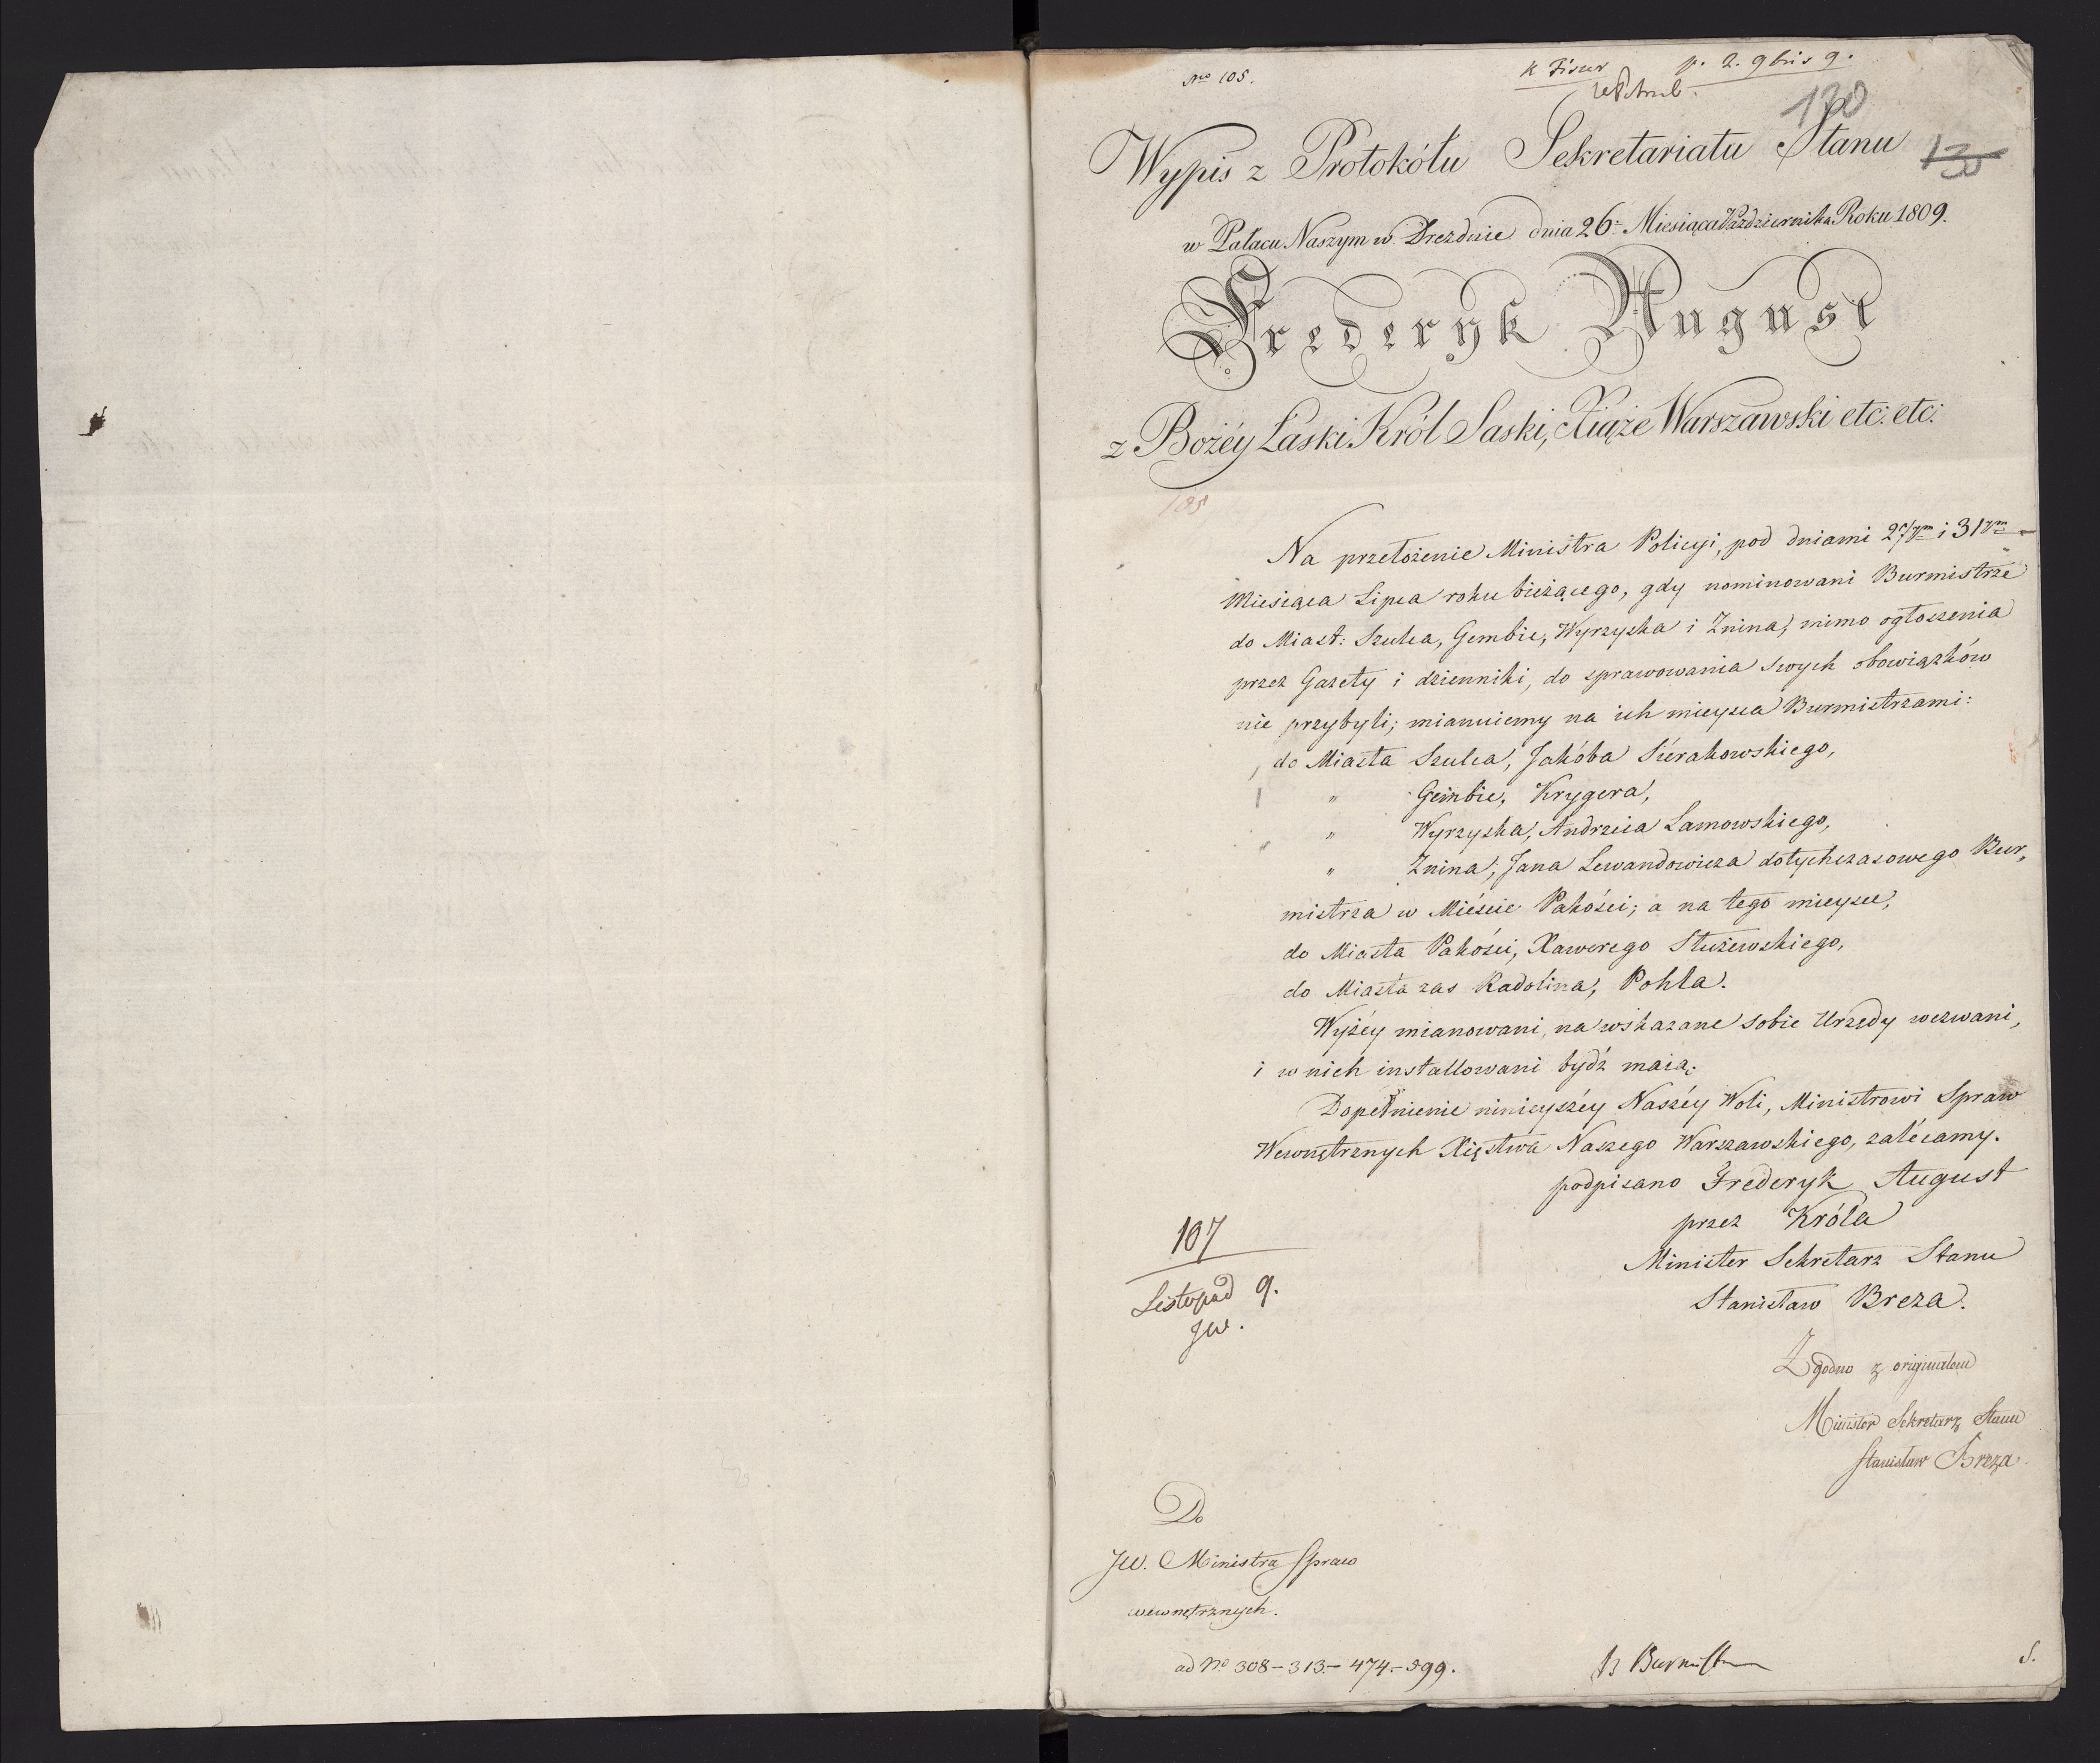 Nro 105.
p. 2. 9bris 9.
130
Wypis z Protokółu Sekretariatu Stanu
130
w Pałacu Naszym w Dreźdnie dnia 26. Miesiąca Października Roku 1809.
Frederyk August
z Bożéy Łaski Król Saski, Xiąże Warszawski etc: etc:
105
Na przełożenie Ministra Policyi, pod dniami 27ym i 31ym
Miesiąca Lipca roku bieżącego, gdy nominowani Burmistrze
do Miast: Szulca, Gembic, Wyrzyska i Znina, mimo ogłoszenia
przez Gazety i dzienniki, do sprawowania swych obowiązków
nie przybyli; mianuiemy na ich mieysca Burmistrzami:
do Miasta Szulca, Jakóba Sierakowskiego,
" Gembic, Krygera,
" Wyrzyska, Andrzeia Lamowskiego,
" Znina, Jana Lewandowicza dotychczasowego Bur„
mistrza w Mieście Pakości; a na tego mieysce,
do Miasta Pakości, Xawerego Służewskiego,
do Miasta zas Radolina, Pohla.
Wyżéy mianowani, na wskazane sobie Urzędy wezwani,
i w nich installowani bydź maią.
Dopełnienie ninieyszéy Naszéy Woli, Ministrowi Spraw
Wewnętrznych Xięstwa Naszego Warszawskiego, zalécamy.
podpisano Frederyk August
przez Króla
Minister Sekretarz Stanu
Stanisław Breza.
107
Listopad 9.
JW.
Zgodno z originałem
Minister Sekretarz Stanu
Stanisław Breza
Do
JW. Ministra Spraw
wewnętrznych.
ad No 308-313.-474.-599.
S.